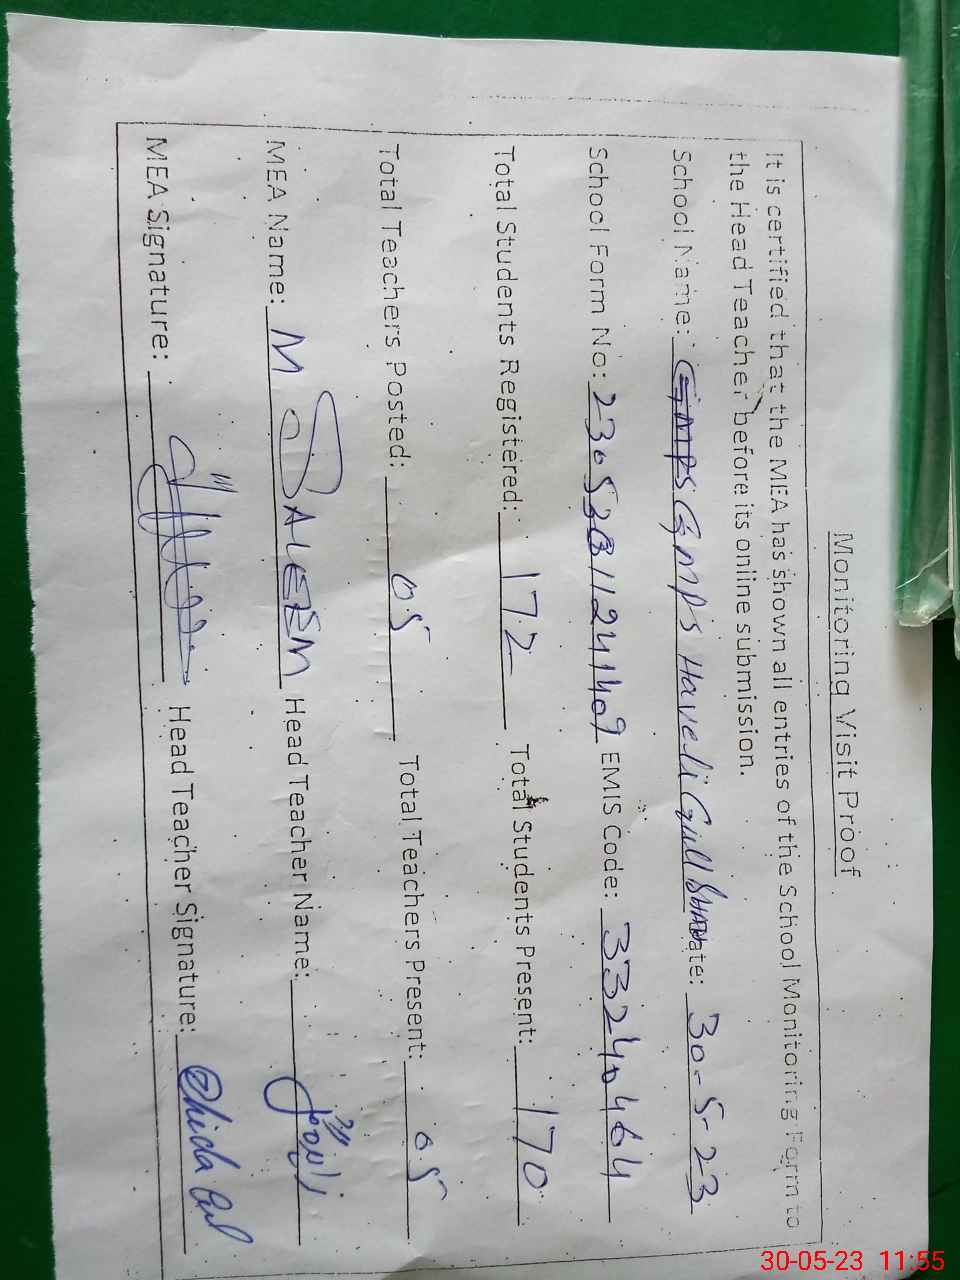 Monitoring Visit Proof
It is certified that the MEA has shown all entries of the School Monitoring Form to
the Head Teacher before its online submission.
School Name: GMPS GMPS Haveli Gull Date: 30-5-23
School Form No: EMIS Code: 33240464
Total Students Registered: 172 Total Students Present: 170
Total Teachers Posted: 05 Total Teachers Present: 05
MEA Name: M SALEEM Head Teacher Name:
MEA Signature: Head Teacher Signature:
30-05-23 11:55